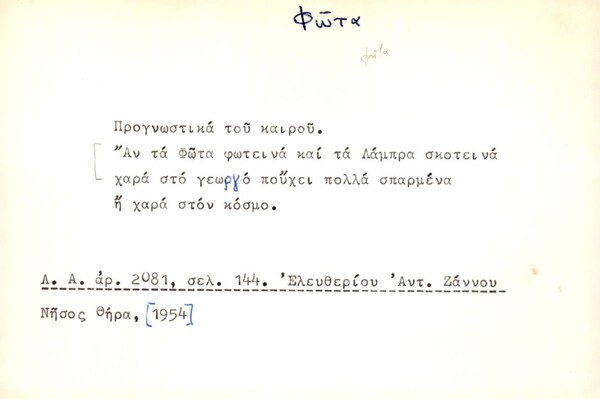 Φῶτα
φῶτα
Προγνωστικά τοῦ καιροῦ.
Ἄν τά Φῶτα φωτεινά καί τά Λάμπρα σκοτεινά
χαρά στό γεωργό ποὔχει πολλά σπαρμένα
ἤ χαρά στόν κόσμο.
Λ. Α. ἀρ. 2081, σελ. 144. Ἐλευθερίου Ἀντ. Ζάννου
Νῆσος Θήρα, [1954]